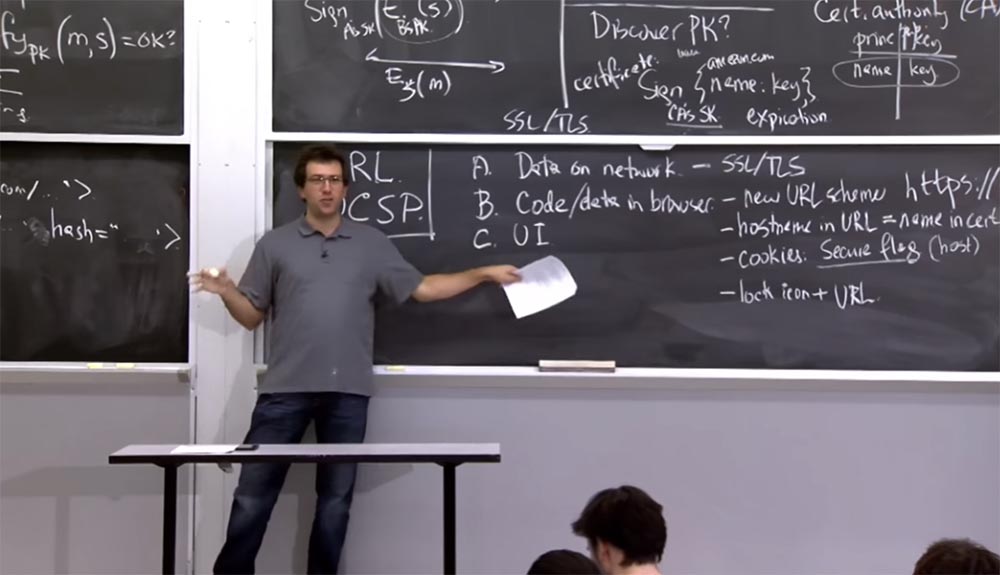 fy_PK (m,s) = OK?
Sign_A's SK (E_B's PK (s))
E_s(m)
SSL/TLS
Discover PK?
certificate: Sign_CA's SK {name: key}
amazon.com
expiration
Cert. authority (CA
name | key
com/.. '>
hash=" '>
RL
CSP
A. Data on network – SSL/TLS
B. Code/data in browser. – new URL scheme https://
– hostname in URL = name in cert
– cookies: Secure flag (host)
C. UI
– lock icon + URL.